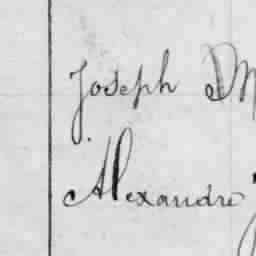 Joseph M
Alexandre